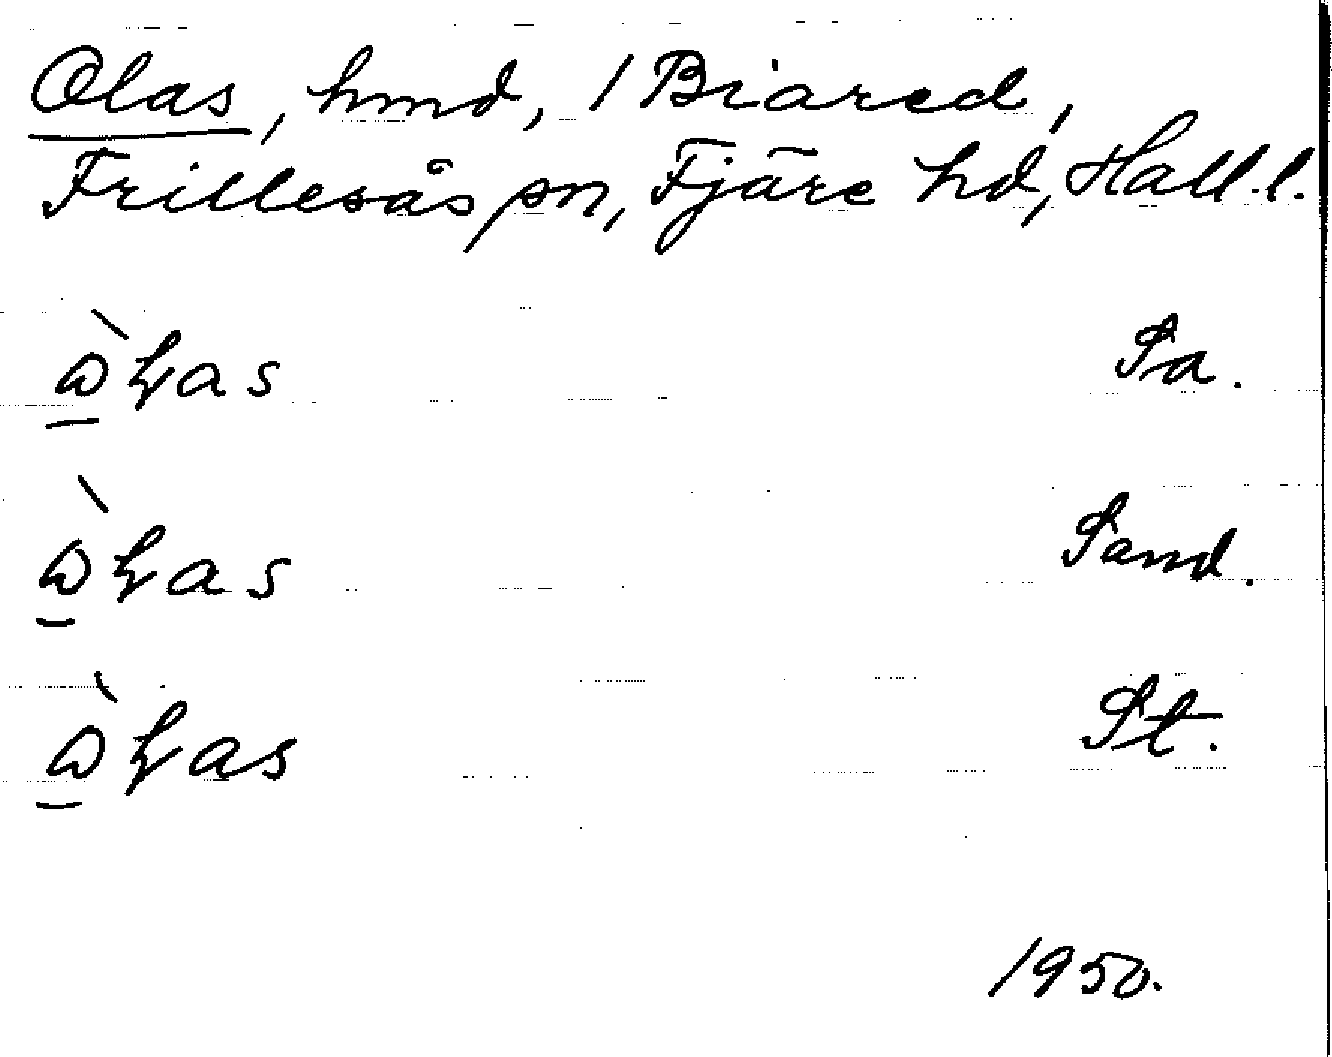 Olas, hmd, 1 Biared,
Frillesås sn, Fjäre hd, Hall.l.
ὼɽas Sa.
ὼɽas Sand.
ὼɽas St.
1950.